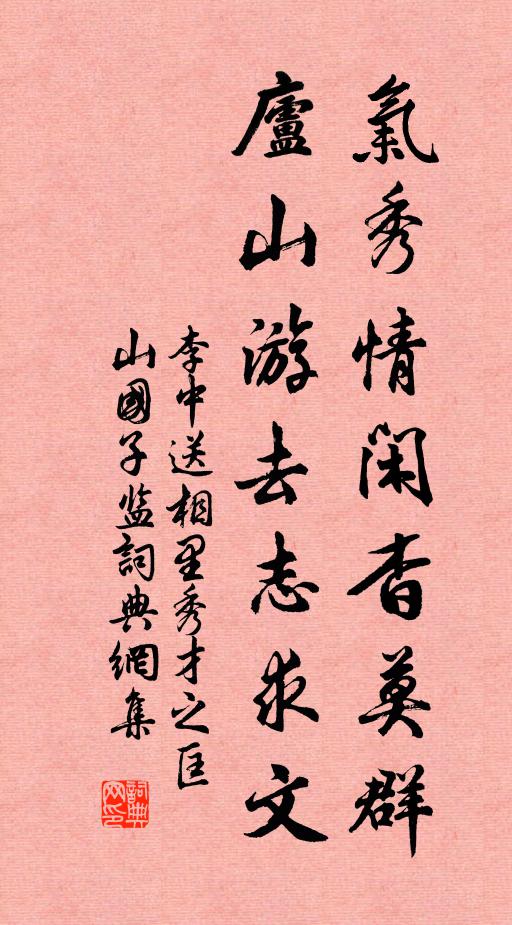 氣秀情閑杳莫群
廬山游去志求文
李中送相里秀才之匡
山國子監詞典網集
詞典网印